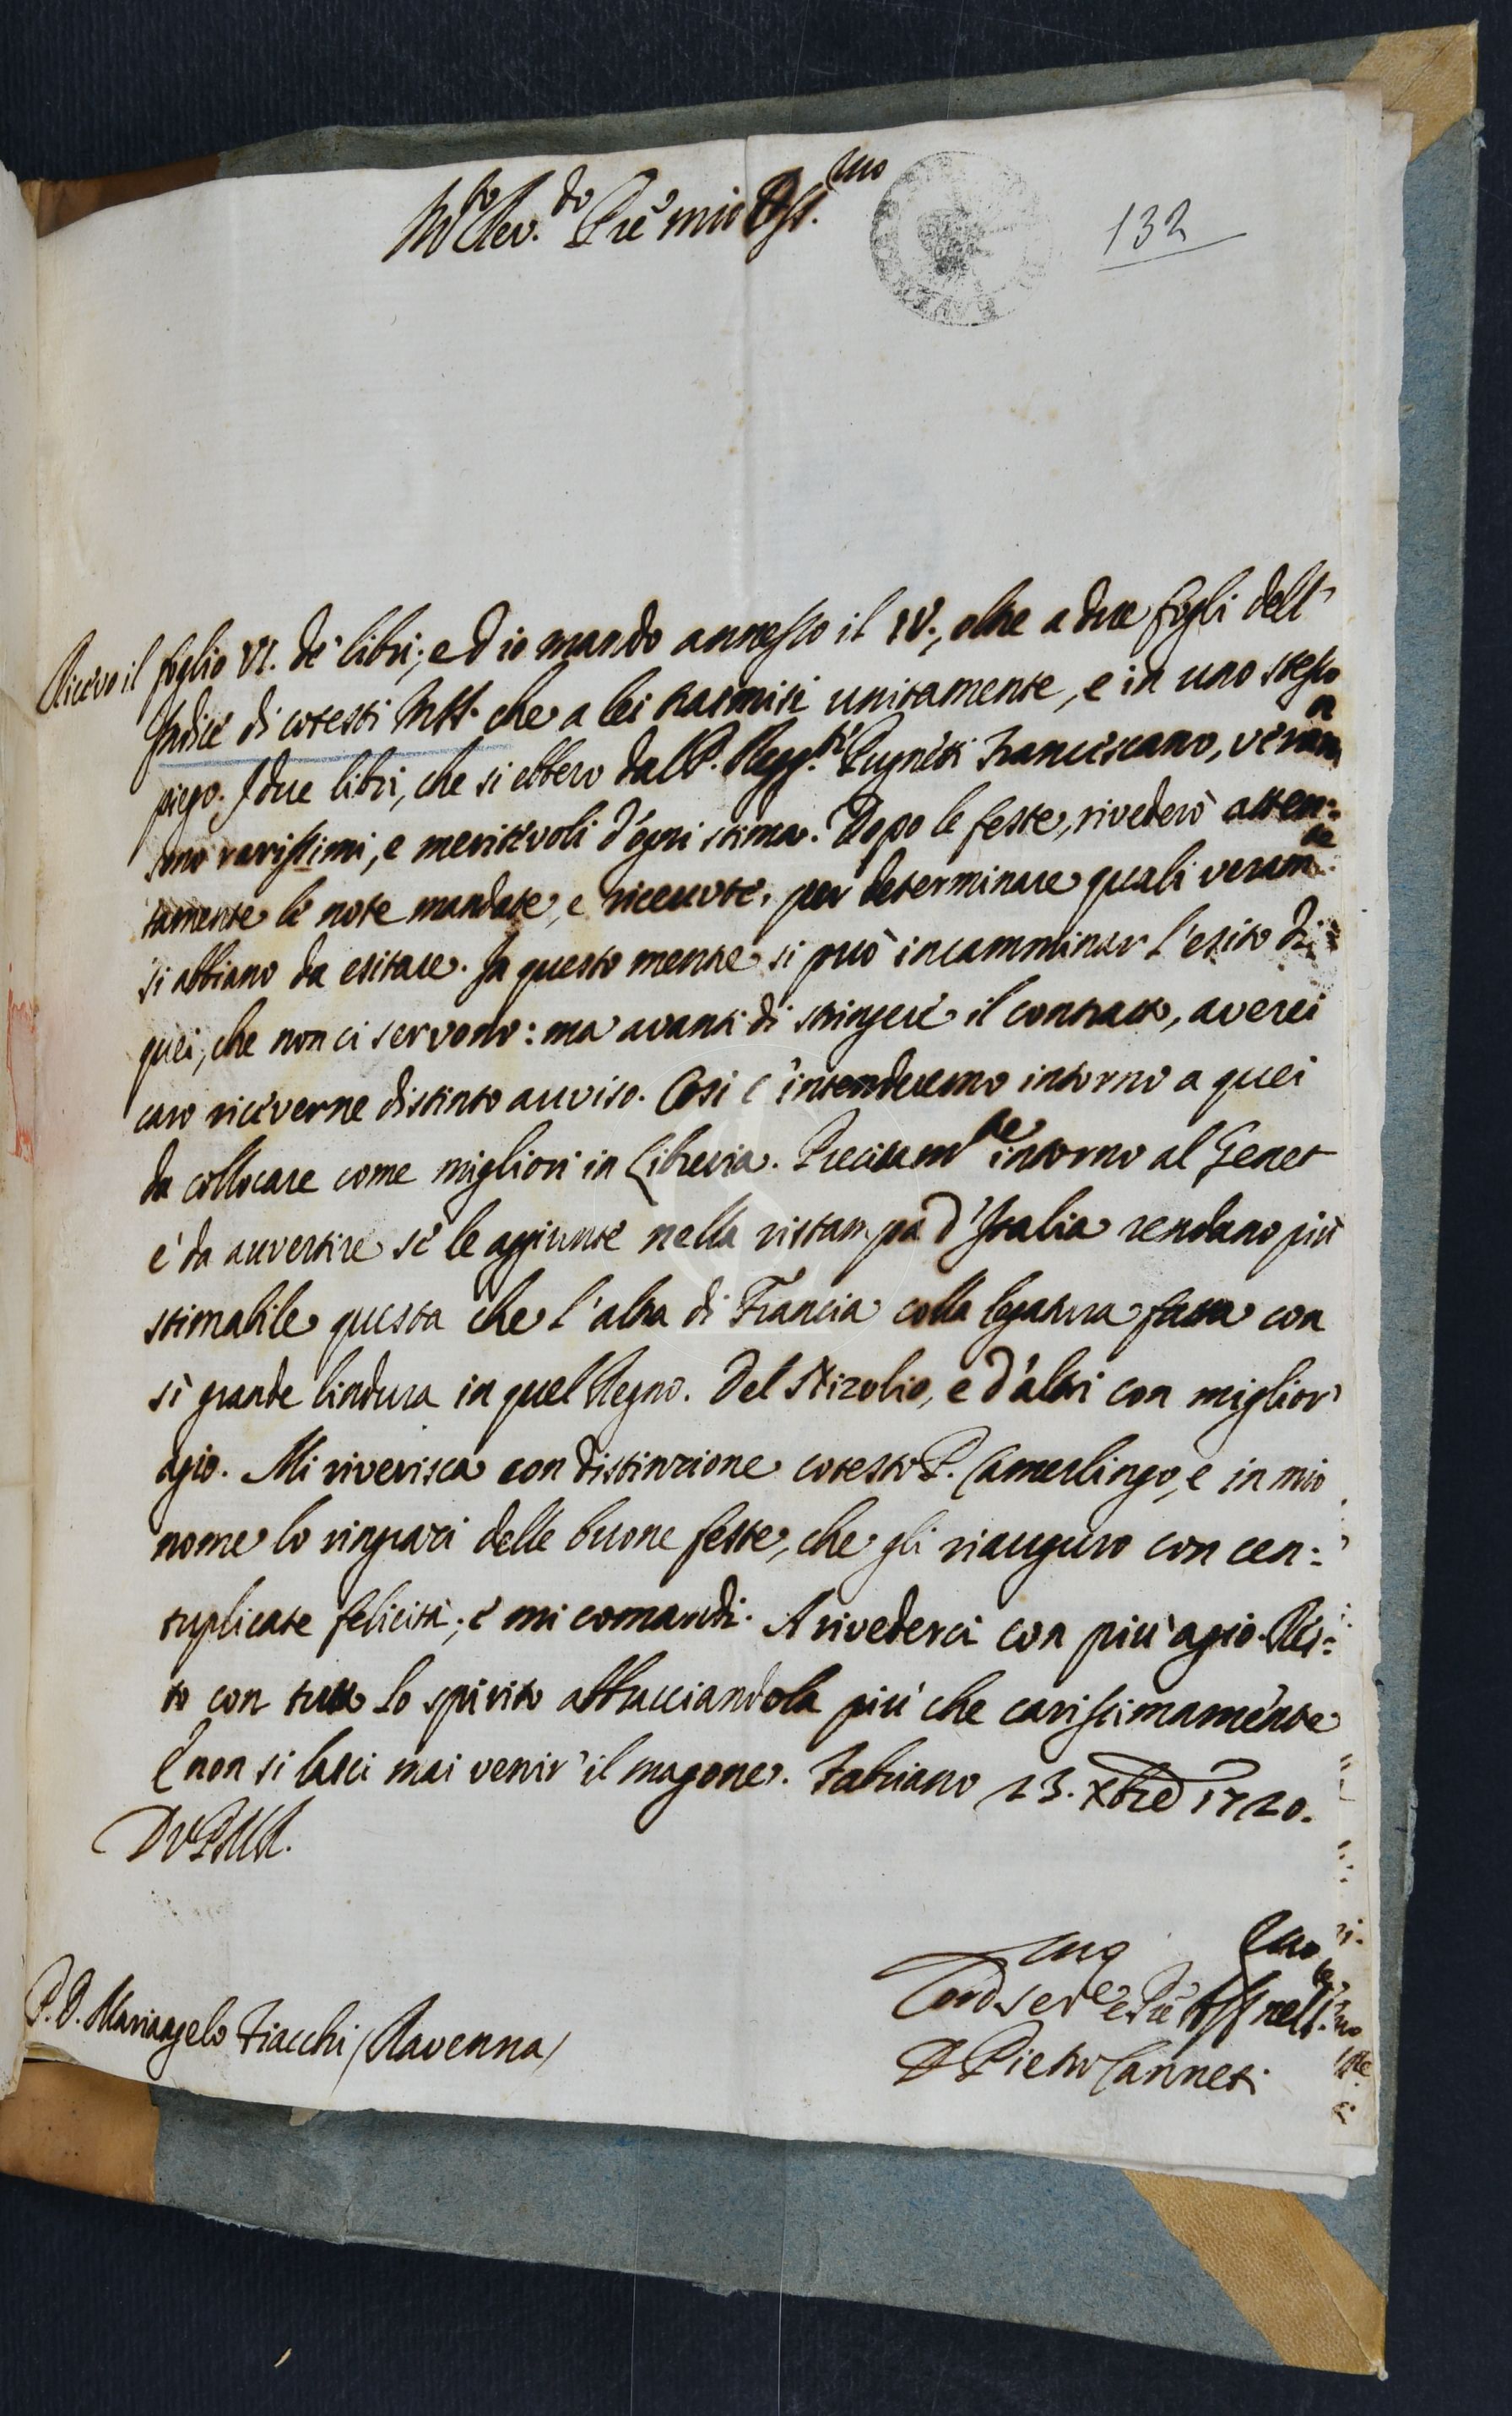 M.to Rev.do Pr̃e mio Oss.mo
132
Ricevo il foglio VI. de' libri; ed io mando annesso il IV., oltre a due fogli dell'
Indice di cotesti MSS. che a lei trasmisi unitamente, e in uno stesso
piego. I due libri, che si ebbero dal P. Regg.te Pugnetti Franciscano, veram.e
sono rarissimi, e meritevoli d'ogni stima. Dopo le feste, rivederò atten:
tamente le note mandate, e ricevute, per determinare quali veram.te
si abbiano da esitare. In questo mentre si può incamminar l'esito di
quei, che non ci servono: ma avanti di stringere il contratto, averei
caro riceverne distinto avviso. Così c'intenderemo intorno a quei
da collocare come migliori in Libreria. Precisam.te intorno al Genet
è da avvertire se le aggiunte nella ristampa d'Italia rendano più
stimabile questa che l'altra di Francia colla legatura fatta con
sì grande lindura in quel Regno. Del Nizolio, e d'altri con miglior'
agio. Mi riverisca con distinzione cotesto P. Camerlingo, e in mio
nome lo ringrazi delle buone feste, che gli riauguro con cen:
tuplicate felicità; e mi comandi. A rivederci con più agio. Res:
to con tutto lo spirito abbracciandola più che carissimamente
E non si lasci mai venir' il magone. Fabriano 23. Xbre 1720.
D V P M R.
P. D. Mariangelo Fiacchi (Ravenna)
D Pietro Canneti